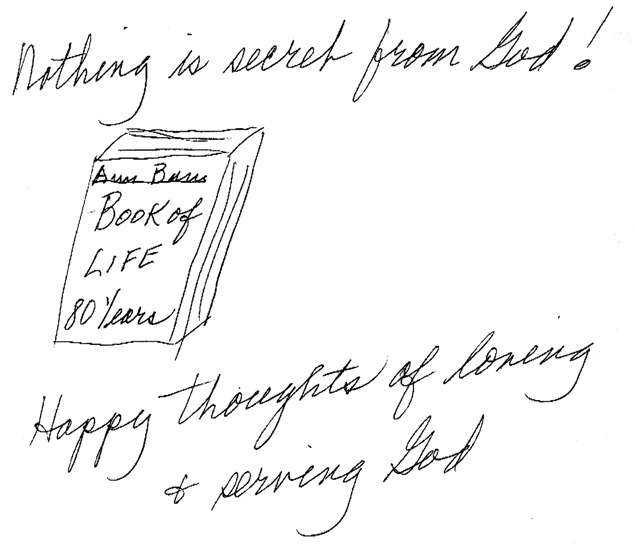 Nothing is secret from God!
BOOK of
LIFE
80 Years
Happy thoughts of loving
& serving God